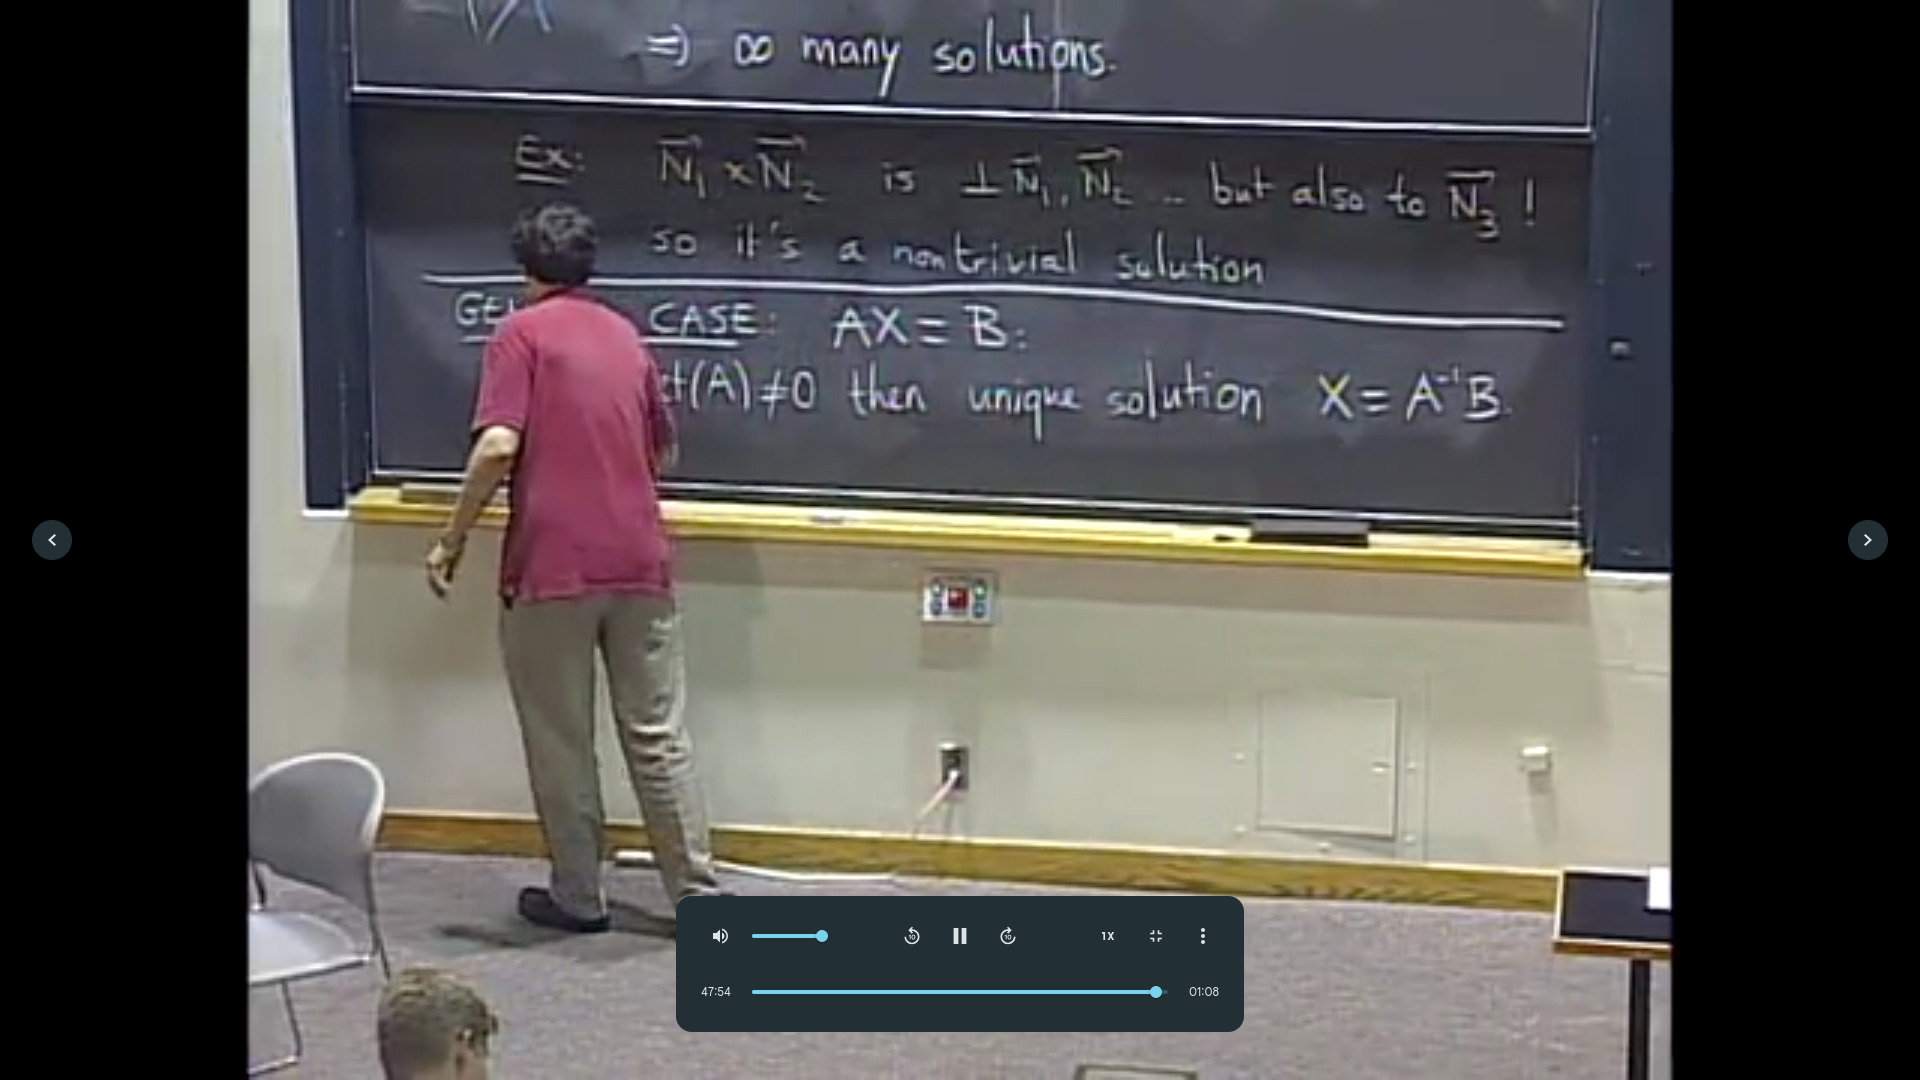 ⇒ ∞ many solutions.
Ex: N⃗₁ × N⃗₂ is ⊥ N⃗₁, N⃗₂ .. but also to N⃗₃ !
so it's a nontrivial solution
CASE: AX = B:
(A) ≠ 0 then unique solution X = A⁻¹B.
10 10 1X
47:54 01:08